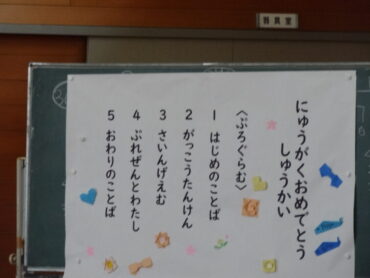 器具室
にゅうがくおめでとう
しゅうかい
〈ぷろぐらむ〉
1 はじめのことば
2 がっこうたんけん
3 さいんげえむ
4 ぷれぜんとわたし
5 おわりのことば